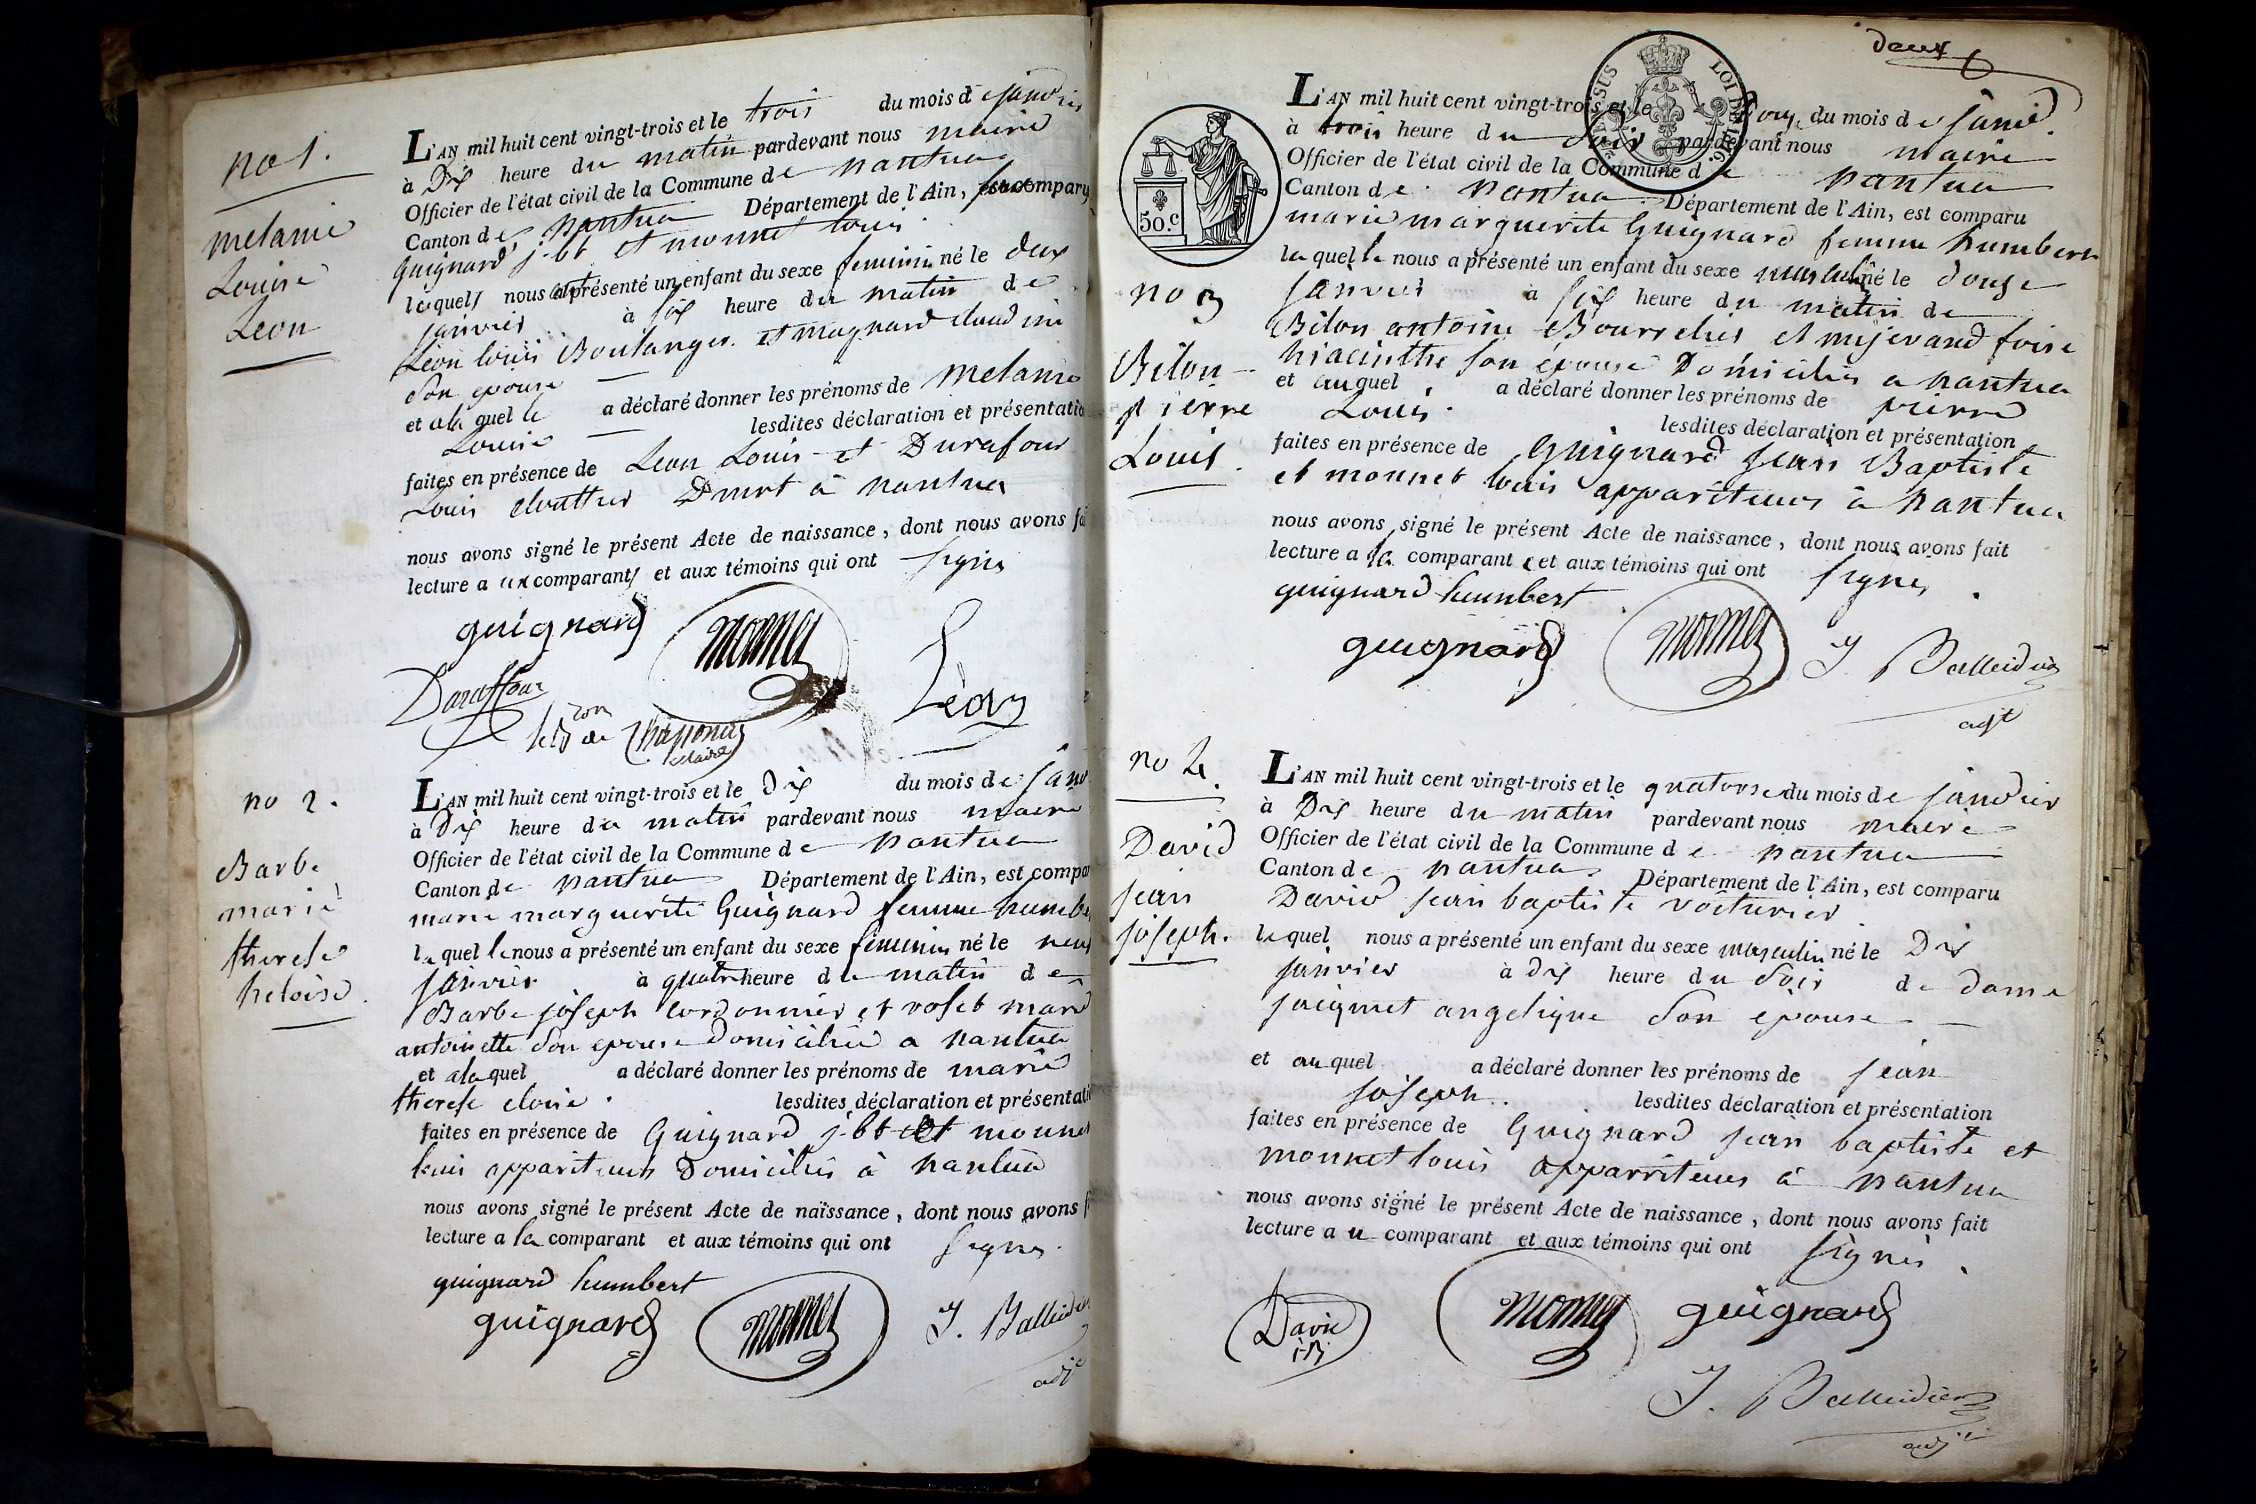 no 1.
melanie
Louise
Leon
L'AN mil huit cent vingt-trois et le trois du mois de janvier
à Dix heure du matin pardevant nous maire
Officier de l'état civil de la Commune de nantua
Canton de nantua Département de l'Ain, sont comparus
Guignard j-bt et monnet louis
lesquels nous ont présenté un enfant du sexe feminin né le deux
janvier à six heure du matin de
Leon louis Boulanger et magnard claudine
son epouse
et a la quelle a déclaré donner les prénoms de melanie
Louise lesdites déclaration et présentation
faites en présence de Leon Louis et Durafour
Louis cloutier Dmrt à nantua
nous avons signé le présent Acte de naissance, dont nous avons fait
lecture a ux comparants et aux témoins qui ont signés
guignard monnet
Duraffour Léon
maire
no 2.
Barbe
marie
therese
heloise.
L'AN mil huit cent vingt-trois et le dix du mois de janv
à dix heure du matin pardevant nous maire
Officier de l'état civil de la Commune de nantua
Canton de nantua Département de l'Ain, est compar
marie marguerite Guignard femme humbe
la quelle nous a présenté un enfant du sexe feminin né le neuf
janvier à quatre heure du matin de
Barbe joseph cordonnier et roset marie
antoinette son epouse domiciliée a nantua
et a la quel a déclaré donner les prénoms de marie
therese eloise. lesdites déclaration et présentation
faites en présence de Guignard j-bt et monnet
louis appariteurs Domiciliés à nantua
nous avons signé le présent Acte de naissance, dont nous avons f
lecture a la comparant et aux témoins qui ont signés.
guignard humbert
guignard monnet J. Balleidier
adj
deux
CENSUS LOI DE 1816.
50.c
no 3
Bilon
pierre
Louis.
L'AN mil huit cent vingt-trois et le douze du mois de janvier
à trois heure du soir pardevant nous maire
Officier de l'état civil de la Commune de nantua
Canton de nantua Département de l'Ain, est comparu
marie marguerite Guignard femme humbert
la quelle nous a présenté un enfant du sexe masculin né le douze
janvier à six heure du matin de
Bilon antoine Bourrelier et mijevand foise
hiacinthe son epouse Domiciliés a nantua
et auquel a déclaré donner les prénoms de pierre
Louis. lesdites déclaration et présentation
faites en présence de Guignard Jean Baptiste
et monnet louis appariteurs à nantua
nous avons signé le présent Acte de naissance, dont nous avons fait
lecture a la comparante et aux témoins qui ont signés.
guignard humbert
guignard monnet J Balleidier
adjt
no 4.
David
jean
joseph.
L'AN mil huit cent vingt-trois et le quatorze du mois de janvier
à Dix heure du matin pardevant nous maire
Officier de l'état civil de la Commune de nantua
Canton de nantua. Département de l'Ain, est comparu
David jean baptiste voiturier
lequel nous a présenté un enfant du sexe masculin né le Dix
janvier à dix heure du soir de dame
angelique son epouse
et auquel a déclaré donner les prénoms de jean
joseph. lesdites déclaration et présentation
faites en présence de Guignard jean baptiste et
monnet louis apparriteurs à nantua
nous avons signé le présent Acte de naissance, dont nous avons fait
lecture a u comparant et aux témoins qui ont signés.
David monnet guignard
J. Balleidier